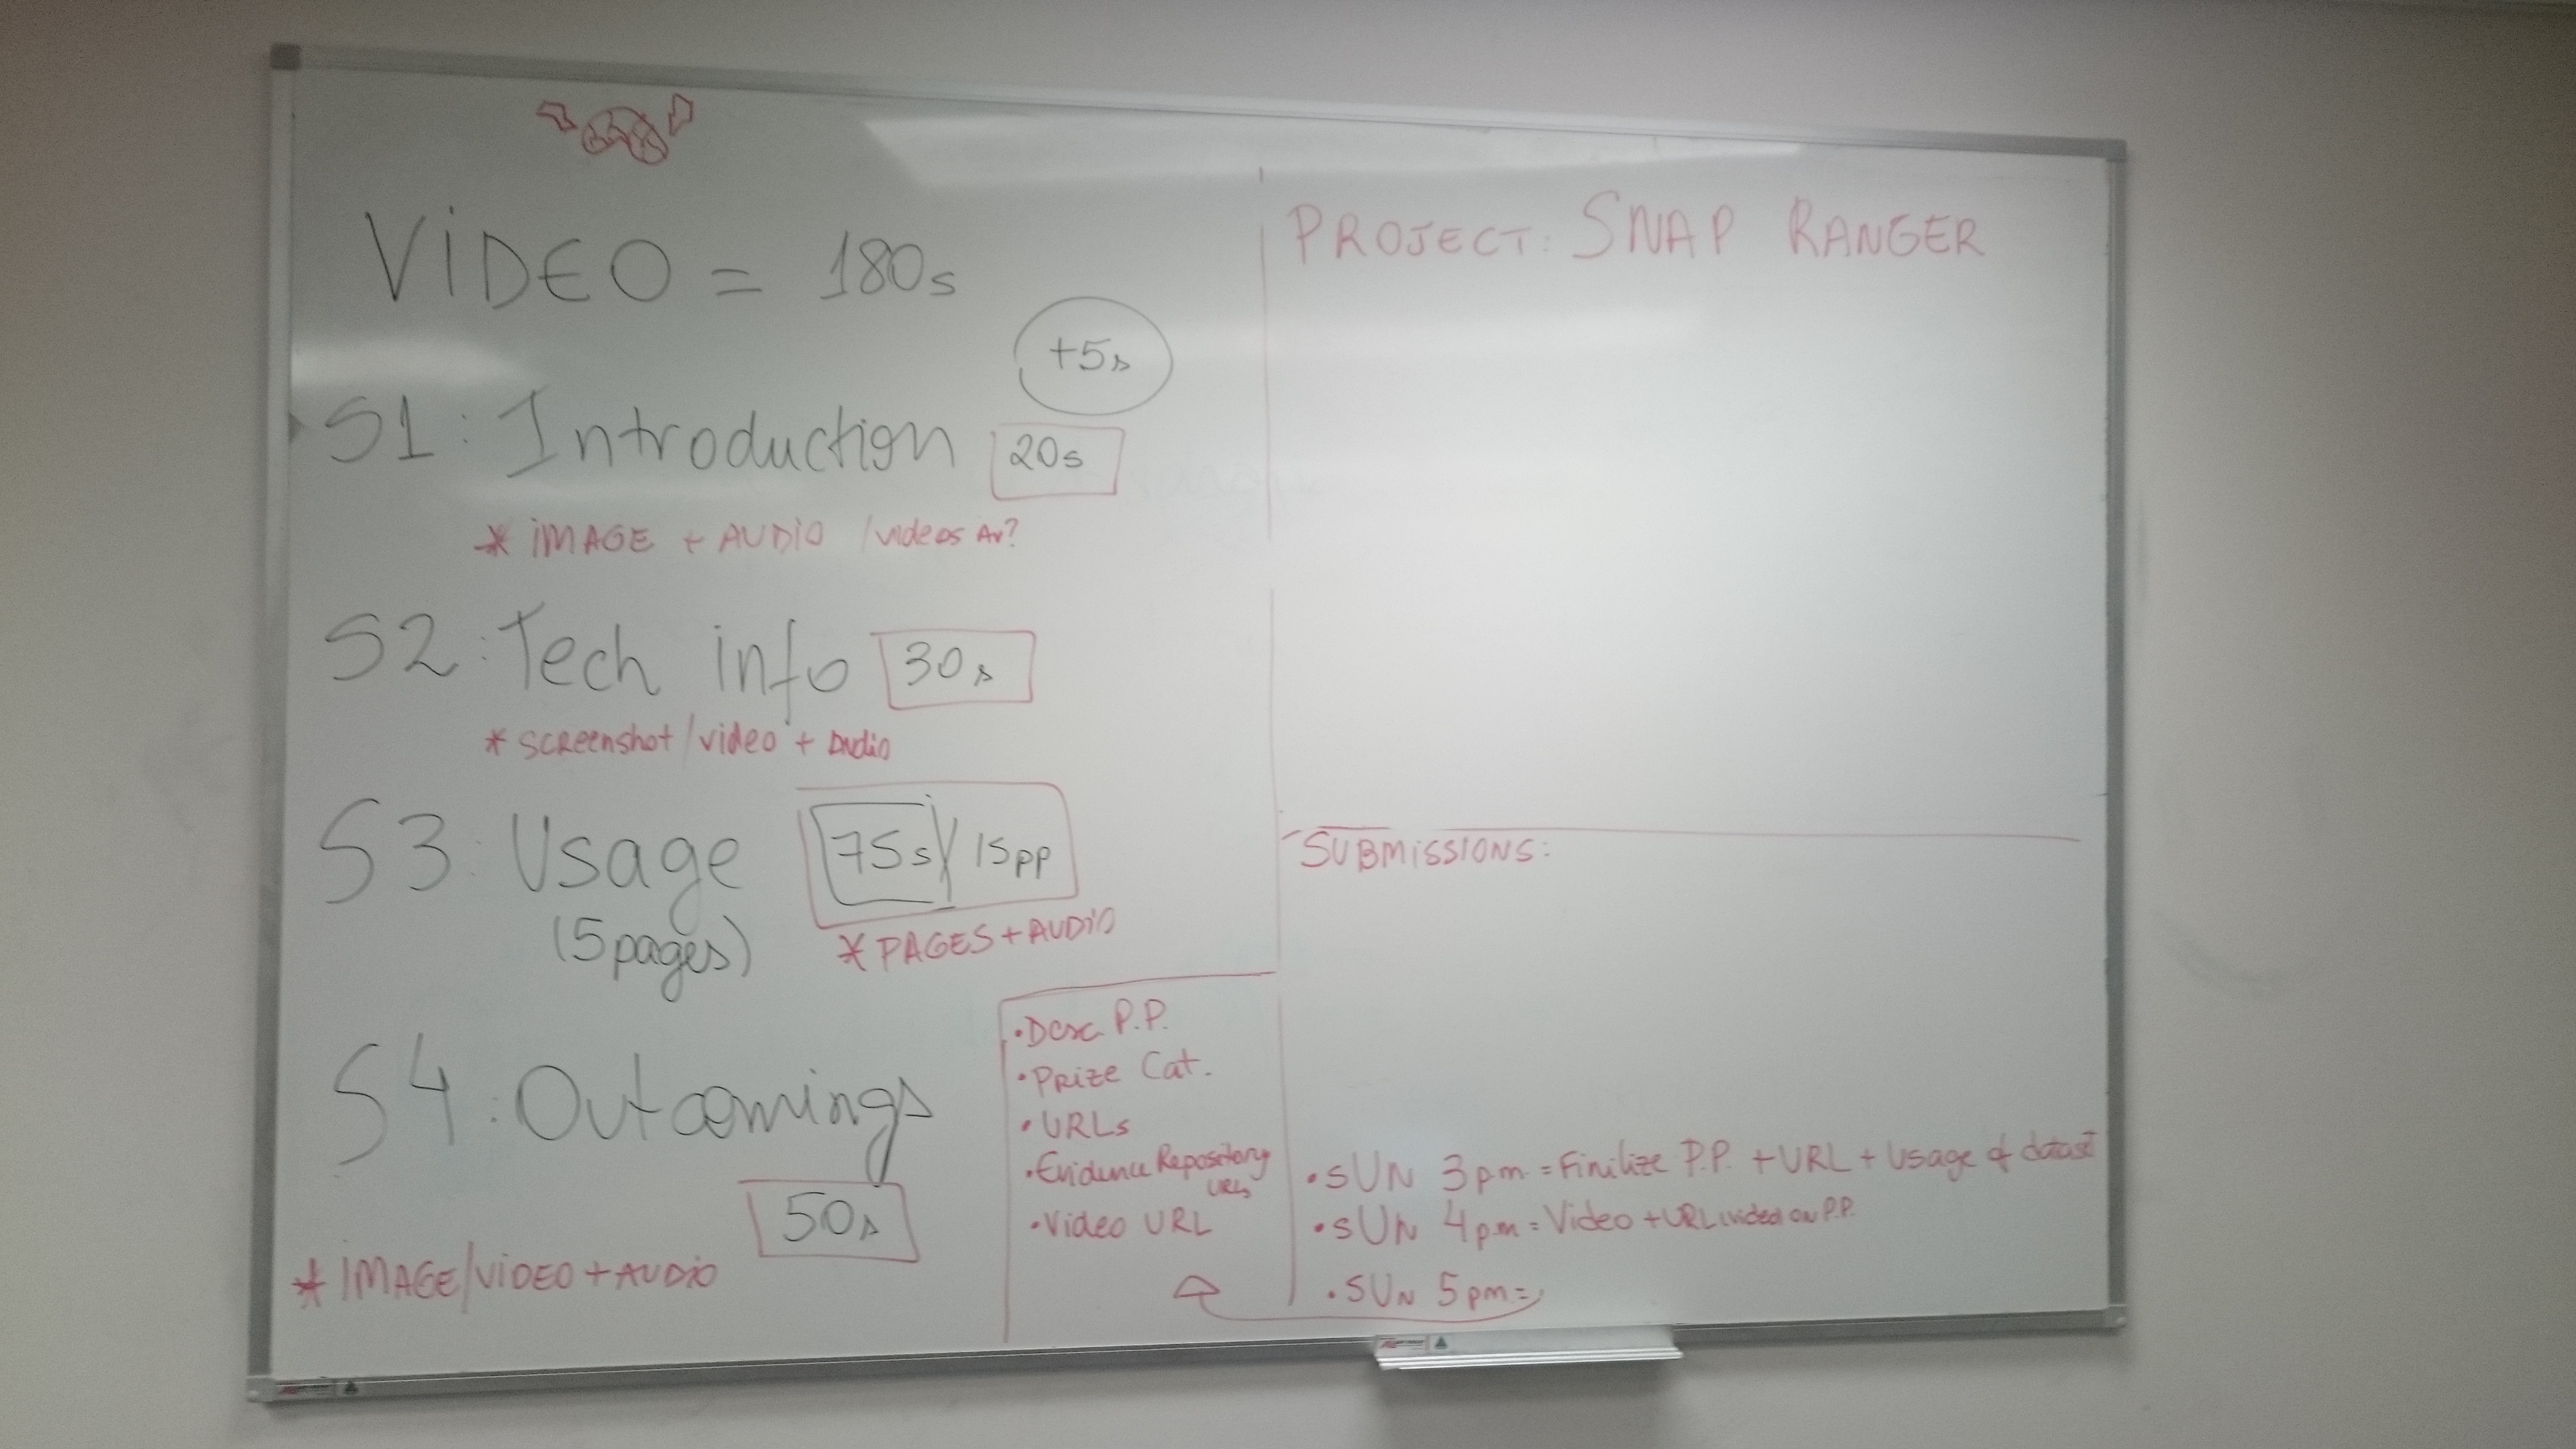 VIDEO = 180s
+5s
S1: Introduction 20s
* IMAGE + AUDIO / videos Av?
S2: Tech info 30s
* Screenshot/video + Audio
S3: Usage 75s / 15pp
(5 pages)
* PAGES + AUDIO
S4: Outcomings
50s
* IMAGE/VIDEO + AUDIO
• Desc. P.P.
• Prize Cat.
• URLs
• Evidence Repository URLs
• Video URL
PROJECT: SNAP RANGER
SUBMISSIONS:
• SUN 3pm = Finilize P.P. + URL + Usage of dataset
• SUN 4pm = Video + URL video on P.P.
• SUN 5pm =